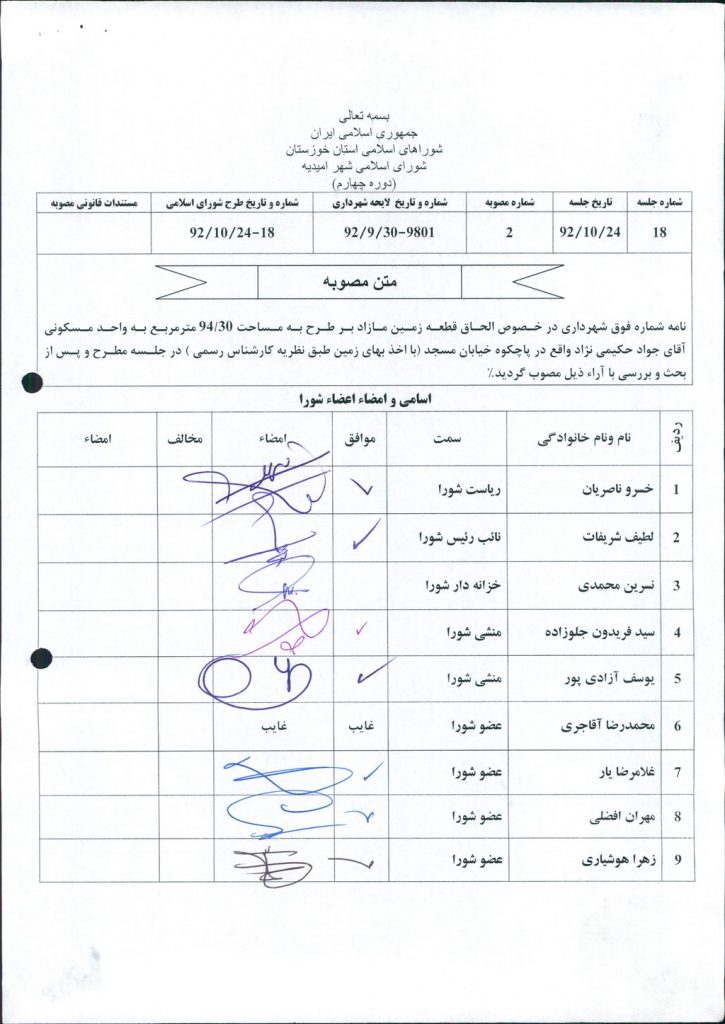 بسمه تعالی
جمهوری اسلامی ایران
شوراهای اسلامی استان خوزستان
شورای اسلامی شهر امیدیه
(دوره چهارم)
شماره جلسه تاریخ جلسه شماره مصوبه شماره و تاریخ لایحه شهرداری شماره و تاریخ طرح شورای اسلامی مستندات قانونی مصوبه
18 92/10/24 2 92/9/30-9801 92/10/24-18
متن مصوبه
نامه شماره فوق شهرداری در خصوص الحاق قطعه زمین مازاد بر طرح به مساحت 94/30 مترمربع به واحد مسکونی
آقای جواد حکیمی نژاد واقع در پاچکوه خیابان مسجد (با اخذ بهای زمین طبق نظریه کارشناس رسمی ) در جلسه مطرح و پس از
بحث و بررسی با آراء ذیل مصوب گردید.٪
اسامی و امضاء اعضاء شورا
ردیف نام ونام خانوادگی سمت موافق امضاء مخالف امضاء
1 خسرو ناصریان ریاست شورا
2 لطیف شریفات نائب رئیس شورا
3 نسرین محمدی خزانه دار شورا
4 سید فریدون جلوزاده منشی شورا
5 یوسف آزادی پور منشی شورا
6 محمدرضا آقاجری عضو شورا غایب غایب
7 غلامرضا یار عضو شورا
8 مهران افضلی عضو شورا
9 زهرا هوشیاری عضو شورا